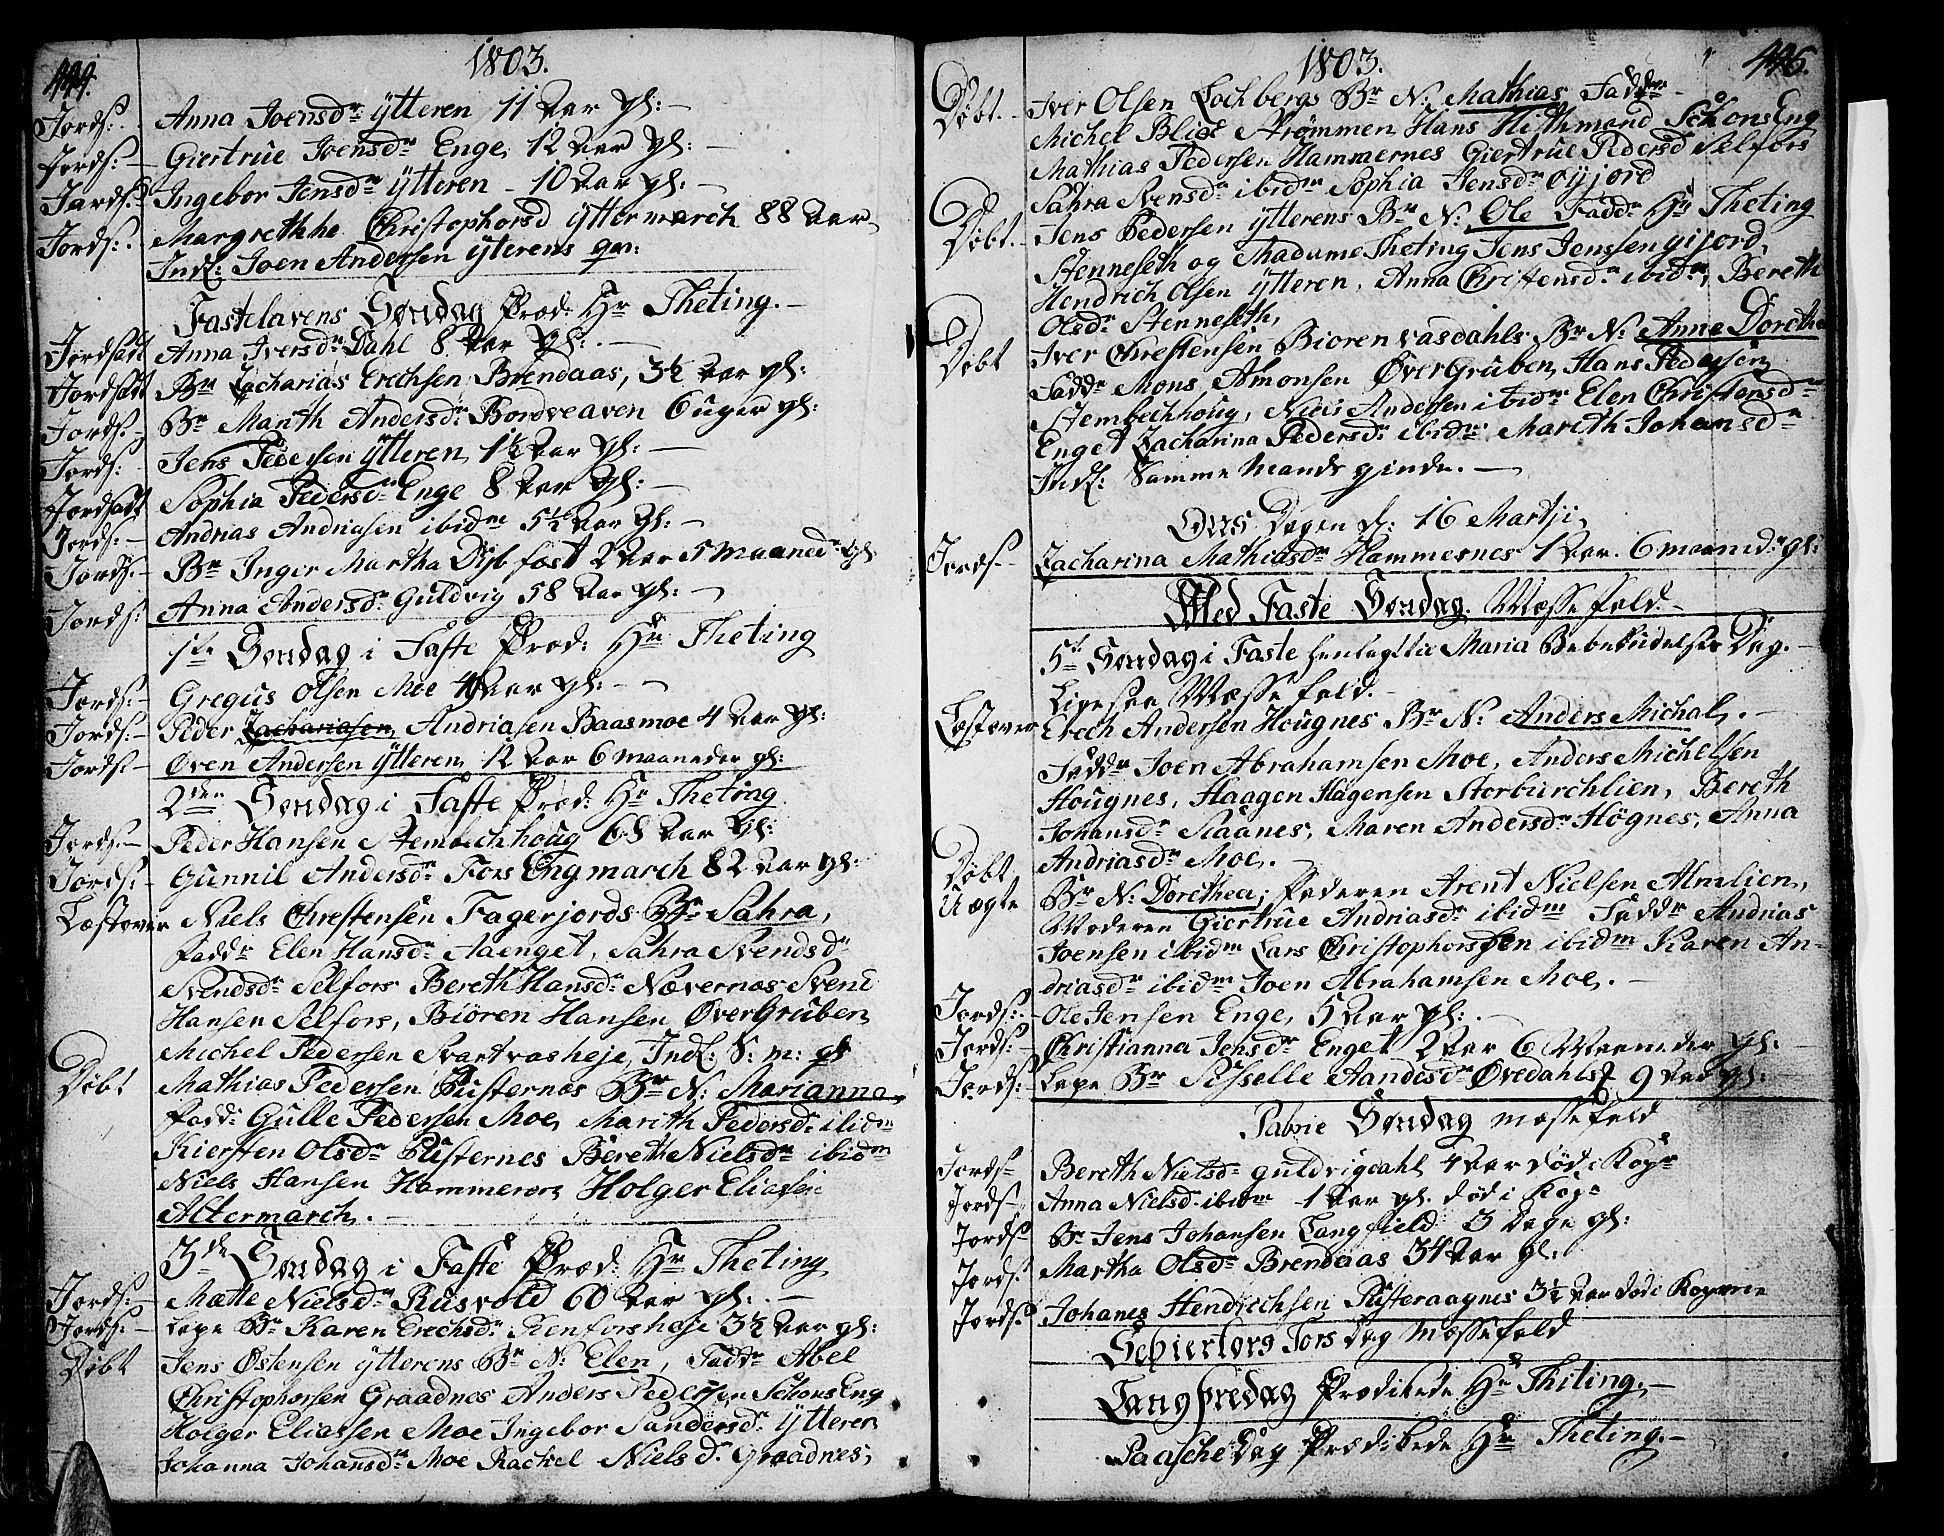 444.
1803.
Jords: Anna Joensdr ÿtteren 11 Aar gl: —
Jords: — Giertrue Joensdr Enge, 12 Aar gl: —
Jords: Ingebor Jensdr ÿtteren - 10 Aar gl: —
Jords: Margrethe Christophorsd yttermarch 88 Aar
Indl: Joen Andersen ÿterens qv:
Fastelavens Søndag Præd: Hr Theting. —
Jordsatt Anna Iversdr Dahl 8 Aar gl: —
Jordsatt Br Zacharias Erechsen Brendaas, 3½ Aar gl:
Jords: — Br Marith Andersdr Bordveaven 6 uger gl:
Jords: Jens Pedersen ÿtteren 1½ Aar gl: —
Jordsatt Sophia Pedersdr Enge 8 Aar gl: —
Jords: — Andrias Andriasen ibidm 5½ Aar gl: —
Jords: — Br Inger Martha fost 2 Aar 5 maaneder gl:
Jords: Anna Andersdr Guldvig 58 Aar gl: —
1ste Søndag i Faste Præd: Hr Theting
Jords: — Gregus Olsen Moe Aar gl: —
Jords: — Peder Zachariasen Andriasen Baasmoe 4 Aar gl:
Jords: — Øven Andersen ÿtteren 12 Aar 6 maaneder gl:
2den Søndag i Faste Præd: Hr Theting
Jords: — Peder Hansen Stembechhoug 68 Aar gl:
Jords: — Gunnil Andersdr Fors Engmarch 82 Aar gl:
Læstover Niels Chrestensen Fagerjords Br Sahra,
Faddr Elen Hansdr Aaenget, Sahra Svendsd
Svendsdr Selfors Bereth Hansdr Nævernæs Svend
Hansen Selfors, Biören Hansen Øvergruben
Michel Pedersen Svartvasheje, Indl: S: m: gl
Døbt Mathias Pedersen Pusternæs Br N: Marianna,
Fadd: Gulle Pedersen Moe, Marith Pedersdr ibidm
Kiersten Olsdr Pusternes Bereth Nielsdr ibidm
Niels Hansen Hammernes Holger Eliasen
Altermarch. —
3de Søndag i Faste Præd: Hr Theting
Jords: — Mætte Nielsdr Rusvold 60 Aar gl: —
Jords: — Lape Br Karen Erechsdr Renforsheje 3½ Aar gl:
Døbt Jens Østensen ÿtterens Br N: Elen, Faddr Abel
Christophorsen Graadnes Anders Pedersen Schons Eng
Holger Eliassen Moe Ingebor Sandersdr ÿtteren
Johanna Johansdr Moe Rachel Nielsd. Graadnes,
1803.
446.
Døbt. — Iver Olsen Lochbergs Br N: Mathias Faddr —
Michel Blix Strømmen Hans Schons Eng
Mathias Pedersen Hammernes Giertrue Pedersd Selfors
Sahra Svensdr ibidm Sophia Jensdr Øÿjord
Døbt. — Jens Pedersen ÿtterens Br N: Ole Fadd: Hr Theting
Stenneseth og Madame Theting Jens Jenssen
Hendrich Olsen ÿtteren, Anna Christensdr ibidm, Bereth
Olsdr Stenneseth,
Døbt Iver Chrestensen Biörenvasdahls Br N: Anne Dorethe
Faddr Mons Amonsen Øvergruben Hans Pedersen
Stembechhoug, Niels Andersen ibidm Elen Christensdr
Enget Zacharina Pedersdr ibidm Mareth Johansdr
Indl: Samme Mands qvinde. —
Ons Dagen d: 16 Martji,
Jords: — Zacharina Mathiasdr Hammernes 1 Aar 6 maaneder gl:
Med Faste Søndag Mæssefald. —
5te Søndag i Faste henlagt til Maria Bebudelses Dag. —
Ligesaa Mæssefald. —
Læstover Erech Andersen Hougnes Br N: Anders Michal. —
Faddr Joen Abrahamsen Moe, Anders Michelsen
Hougnes, Haagen Hagensen Storburchlien, Bereth
Johansdr Skaanes, Maren Andersdr Högnes, Anna
Andriasdr Moe. —
Døbt Uægte Br N: Dorethea; Faderen Arent Nielsen Almlien,
Moderen Giertrue Andriasdr ibidm Faddr Andrias
Joensen ibidm Lars Christophorsen ibidm Karen An-
driasdr ibidm Joen Abrahamsen Moe. —
Jords: — Ole Jensen Enge, 5 Aar gl: —
Jords: — Christianna Jensdr Enget 2 Aar 6 Maaneder gl:
Jords: Lape Br Sisselle Aandesdr Øvedahls 9 Aar gl:
Palme Søndag mæssefald
Jords — Bereth Nielsdr Guldvigdahl 4 Aar død i Kopr
Jords — Anna Nielsd ibidm 1 Aar gl. død i Kopr
Jords Br Jens Johansen Langfield 3 Dage gl:
Jords: Martha Olsdr Brendaas 34 Aar gl:
Jords: Johanes Hendrichsen Pusteraagnes 3½ Aar død i Kopperne
Schiertors Tors Dag Mæssefald
Langfredag Prædikede Hr Theting. —
Paasche Dag Prædikede Hr Theting. —